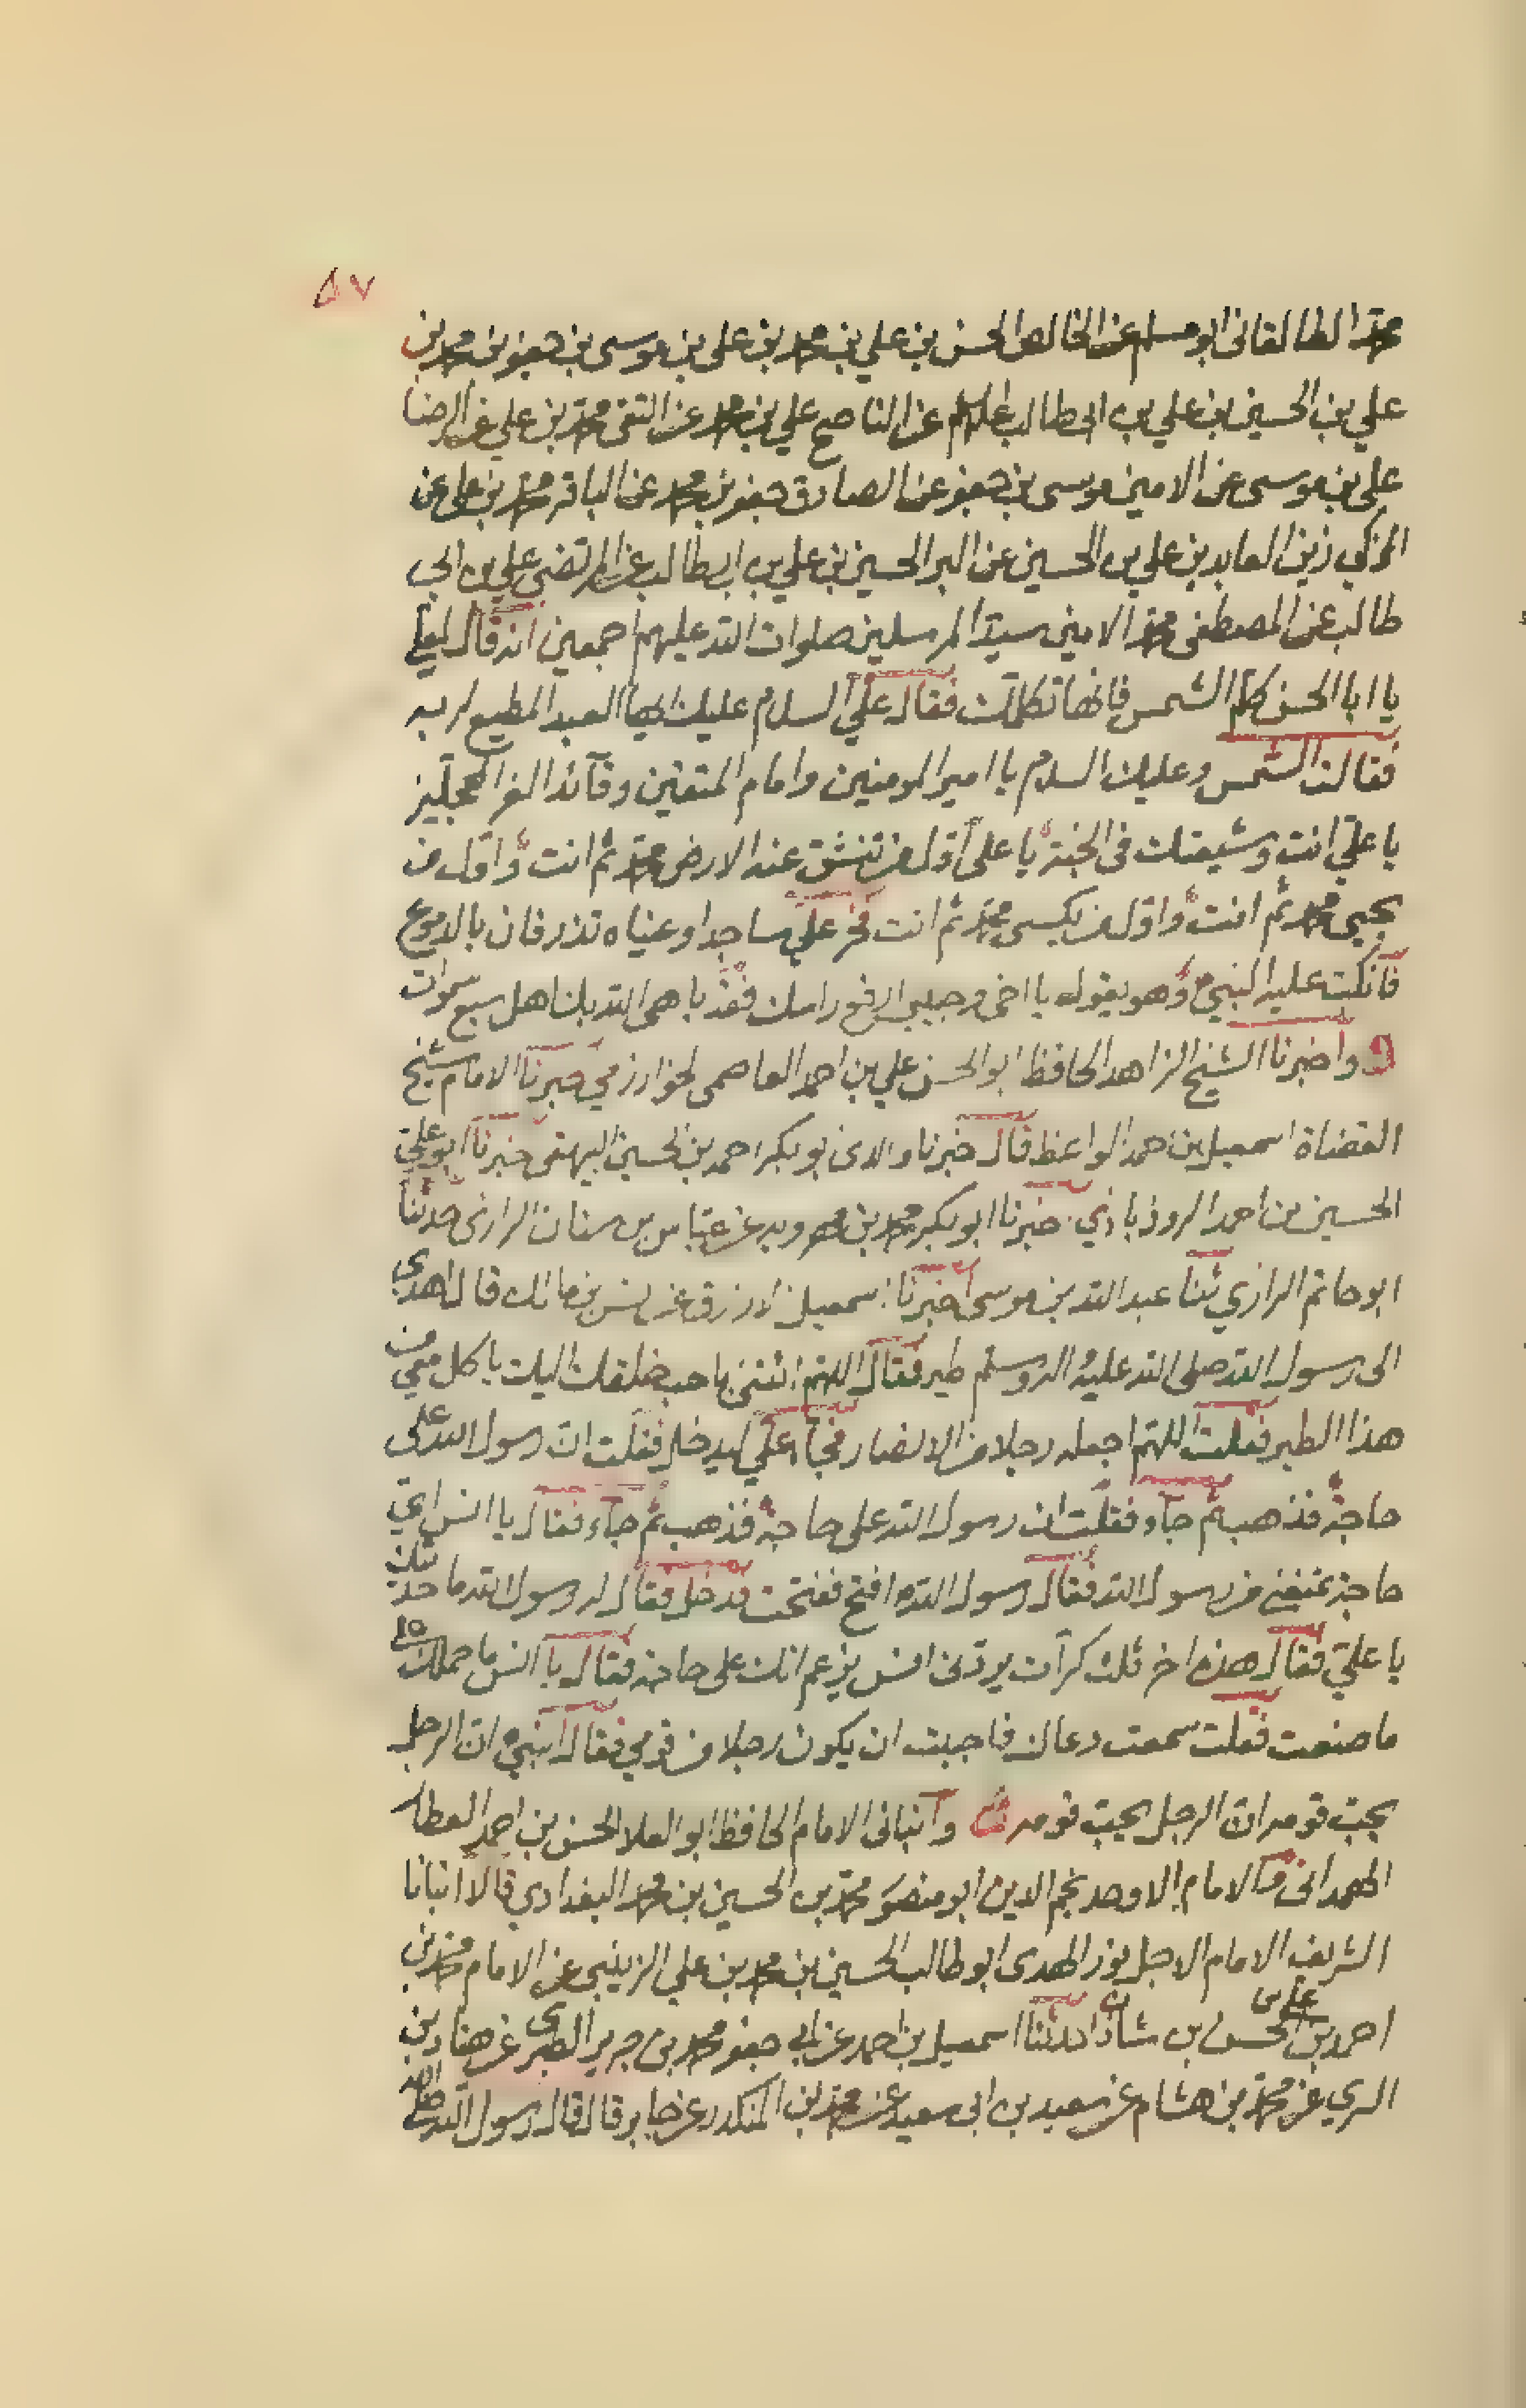 ٥٧
محمد الطالقانى ابو مسلم عن الخالص الحسن بن علي بن محمد بن على بن موسى بن جعفر بن محمد بن
علي بن الحسين بن علي بن ابى طالب عليهم السلام عن الناصح علي بن محمد عن التقى محمد بن علي عن الرضا
على بن موسى عن الامين موسى بن جعفر عن الصادق جعفر بن محمد عن الباقر محمد بن على عن
الزكي زين العابدين علي بن الحسين عن البر الحسين بن علي بن ابيطالب عن المرتضى علي بن ابي
طالب عن المصطفى محمد الامين سيد المرسلين صلوات الله عليهم اجمعين انه قال لعلي
يا ابا الحسن كلم الشمس فانها تكلمك فقال علي السلام عليك ايها العبد المطيع لربه
فقالت الشمس وعليك السلام يا امير المومنين وامام المتقين وقآئد الغر المحجلين
يا علي انت وشيعتك فى الجنة يا على اول من تنشق عنه الارض محمد ثم انت واول من
يحيى محمد ثم انت واول من يكسى محمد ثم انت فخر علي ساجدا وعيناه تذرفان بالدموع
فانكب عليه النبي وهو يقول يا اخى وحبيبي ارفع راسك فقد باهى الله بك اهل سبع سموات
واخبرنا الشيخ الزاهد الحافظ ابو الحسن علي بن احمد العاصمى الخوارزمي خبرنا الامام شيخ
القضاة اسمعيل بن احمد الواعظ قال خبرنا والدى بو بكر احمد بن الحسين البيهقى خبرنا ابو علي
الحسين بن احمد الروذباذي خبرنا ابو بكر محمد بن مهرويه عن عباس بن سنان الرازى حدثنا
ابو حاتم الرازي ثنا عبد الله بن موسى اخبرنا سمعيل الازرق عن انس بن مالك قال اهدى
الى رسول الله صلى الله عليه واله وسلم طير فقال اللهم ائتنى باحب خلقك اليك ياكل معي من
هذا الطير فقلت اللهم اجعله رجلا من الانصار فجآء علي ليدخل فقلت ان رسول الله على
حاجة فذهب ثم جآء فقلت ان رسول الله على حاجة فذهب ثم جآء فقال يا انس اي
حاجة تمنعنى من رسول الله فقال رسول الله افتح ففتحت فدخل فقال له رسول الله ما حدثك
يا علي فقال هذه اخر ثلث كرات يردنى انس يزعم انك على حاجة فقال يا انس ما حملك على
ما صنعت فقلت سمعت دعاك فاحببت ان يكون رجلا من قومي فقال النبي ان الرجل
يحب قومه ان الرجل يحب قومه وانبانى الامام الحافظ ابو العلا الحسن بن احمد العطار
الهمدانى والامام الاوحد نجم الدين ابو منصور محمد بن الحسين بن محمد البغدادي قالا انبانا
الشريف الامام الاجل نور الهدى ابو طالب الحسين بن محمد بن علي الزينبي عن الامام محمد بن
احمد بن على بن الحسن بن شاذان حدثنا اسمعيل بن احمد عن ابي جعفر محمد بن جرير الطبرى عن هناد بن
السري عن محمد بن هشام عن سعيد بن ابى سعيد عن محمد بن المنكدر عن جابر قال قال رسول الله صلى الله